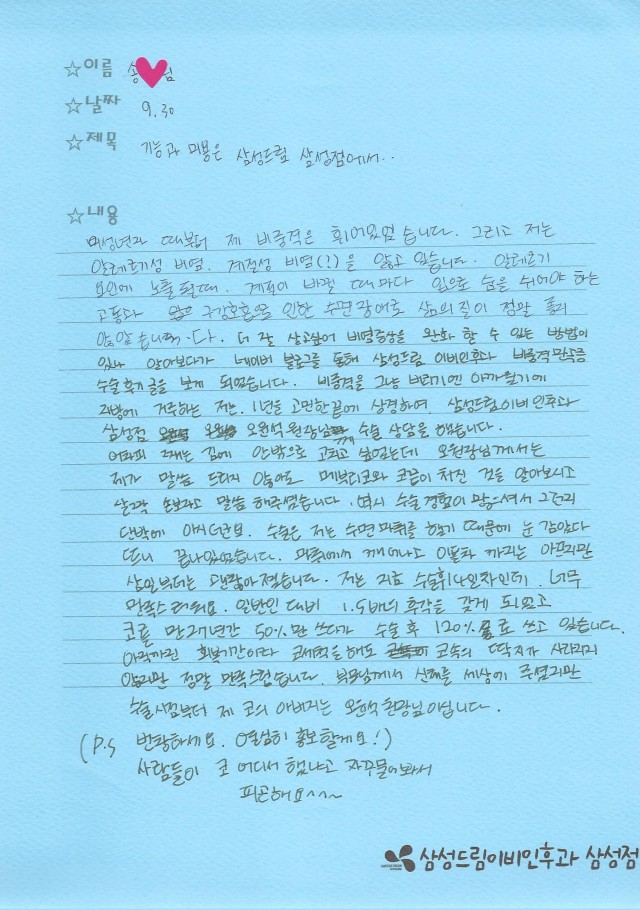 ☆이름 송♥님
☆날짜 9.30
☆제목 기능과 미용은 삼성드림 삼성점에서..
☆내용
미성년자 때부터 제 비중격은 휘어있었습니다. 그리고 저는
알레르기성 비염, 계절성 비염(?)을 앓고 있습니다. 알레르기
요인에 노출될때, 계절이 바뀔 때마다 입으로 숨을 쉬어야 하는
고통과 구강호흡으로 인한 수면장애로 삶의 질이 정말 좋지
않았습니다. 더 잘 살고싶어 비염증상을 완화 할 수 있는 방법이
있나 알아보다가 네이버 블로그를 통해 삼성드림 이비인후과 비중격만곡증
수술후기 글을 보게 되었습니다. 비중격을 그냥 버리기엔 아까웠기에
지방에 거주하는 저는 1년을 고민한끝에 상경하여 삼성드림이비인후과
삼성점 오원석원장님께 수술 상담을 했습니다.
어차피 째는 김에 안밖으로 고치고 싶었는데 오원장님께서는
제가 말씀 드리지 않아도 메부리코와 코끝이 처진 것을 알아보시고
살짝 손보라고 말씀 해주셨습니다. 역시 수술경험이 많으셔서 그런지
단박에 아시더라고요. 수술은 저는 수면마취를 했기 때문에 눈 감았다
뜨니 끝나있었습니다. 마취에서 깨어나고 이틀차 까지는 아프지만
삼일부터는 괜찮아졌습니다. 저는 지금 수술휘4일차인데 너무
만족스러워요. 일반인 대비 1.5배의 후각을 갖게 되었고
코를 만27년간 50%만 쓰다가 수술 후 120%로 쓰고 있습니다.
아직까진 회복기간이라 코세척을해도 코속의 딱지가 사라지지
않지만 정말 만족스럽습니다. 부모님께서 신체를 세상에 주셨지만
수술시점부터 제 코의 아버지는 오원석원장님이십니다.
(P.S 번창하세요. 열심히 홍보할게요!)
사람들이 코 어디서 했냐고 자꾸물어봐서
피곤해요^^~
삼성드림이비인후과 삼성점